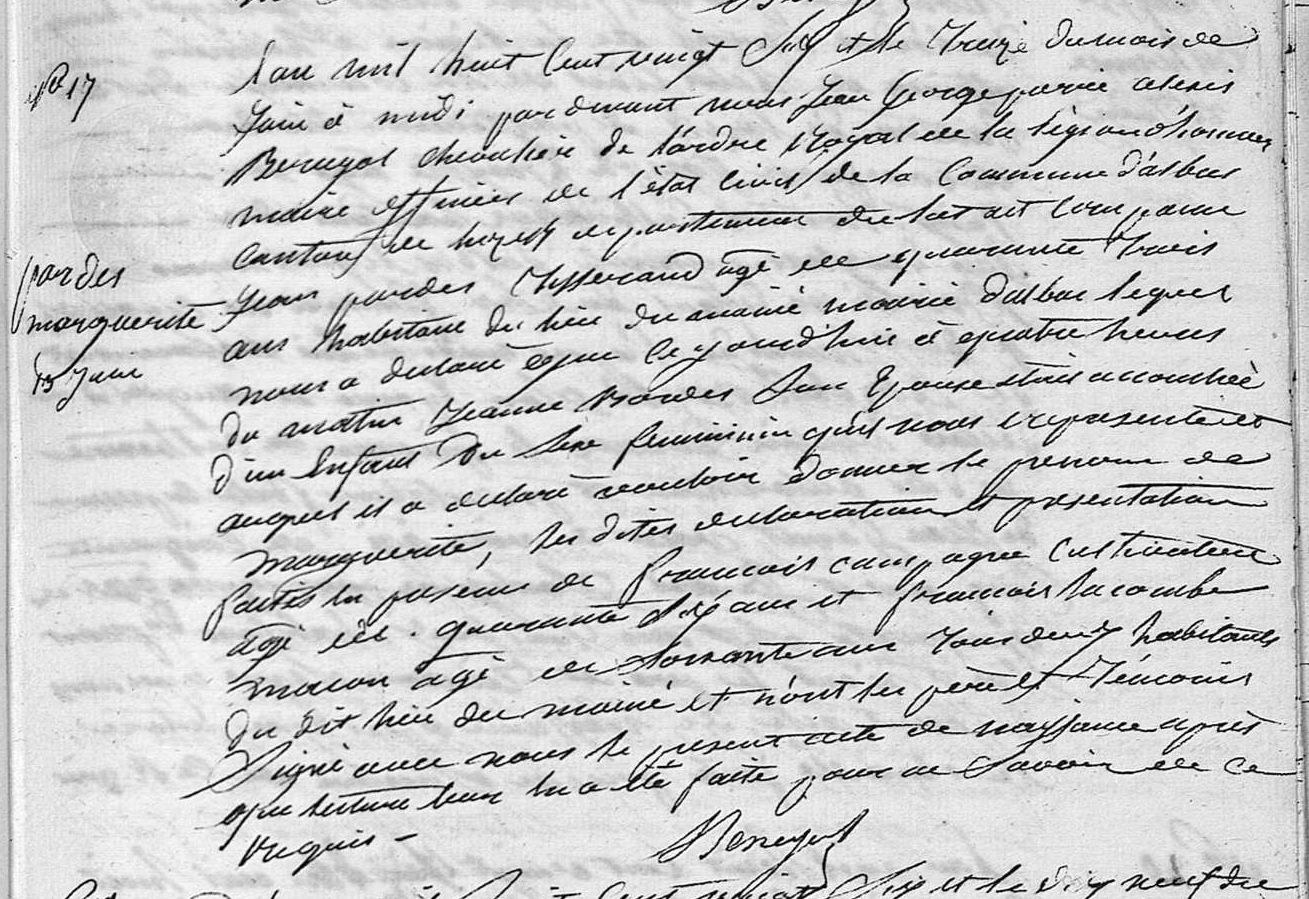 N° 17
pardes
marguerite
13 Juin
L'an mil huit Cent vingt Six et le Treize du mois de
Juin à midi par devant nous Jean George marie alexis
Benazet chevalier de l'ordre Royal de la légion d'honneur
maire officier de l'état Civil de la Commune d'albas
Canton de luzech departement du Lot est Comparu
Jean pardes Tisserand agé de quarante trois
ans habitant du lieu du mainé mairie d'albas lequel
nous a declaré que Cejourd'hui à quatre heures
du matin Jeanne Bordes Son Epouse s'est accouchée
d'un Enfant Du Sexe feminin qu'il nous a represénté et
auquel il a declaré vouloir donner le prenom de
marguerite, les dites declaration et presentation
faites en presence de francois campagne Cultivateur
agé de quarante Six ans et francois lacombe
macon agé de Soixante ans tous deux habitants
du dit lieu du mainé et n'ont les père et Témoins
Signé avec nous le present acte de naissance après
que lecture leur en a été faite pour ne Savoir de ce
Requis –
Benazet
Six et le dix neuf du